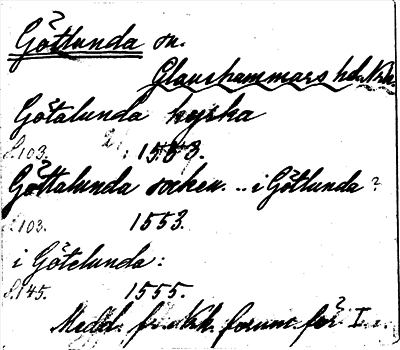 Götlunda sn.
Glanshammars hd. Nke.
Götalunda kyrka
s. 103. 1553.
Göttalunda socken .. i Götlunda ?
s. 103. 1553.
i Götelunda:
s. 145. 1555.
Medd. fr. forum för I